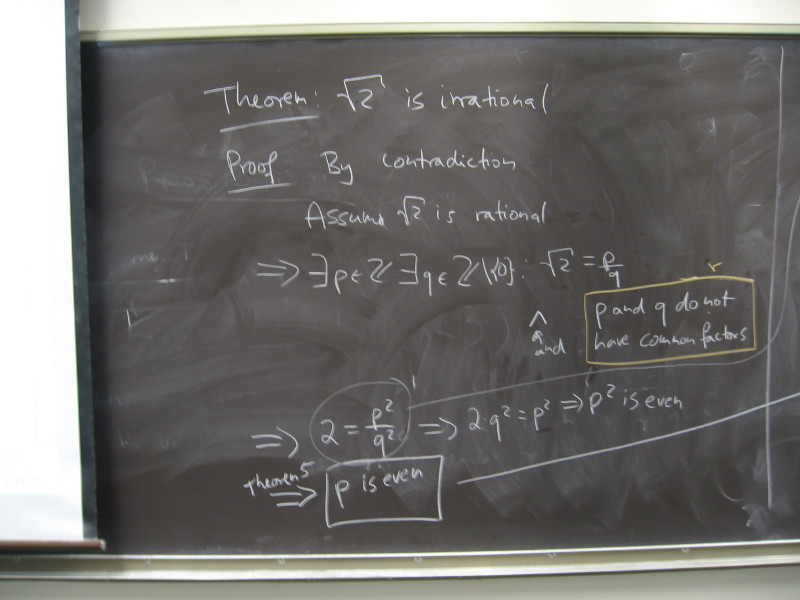 Theorem: √2 is irrational
Proof By contradiction
Assume √2 is rational
⇒ ∃p∈ℤ ∃q∈ℤ\{0}: √2 = p/q
∧ and p and q do not
have common factors
⇒ 2 = p²/q² ⇒ 2·q² = p² ⇒ p² is even
Theorem 5
⇒ p is even